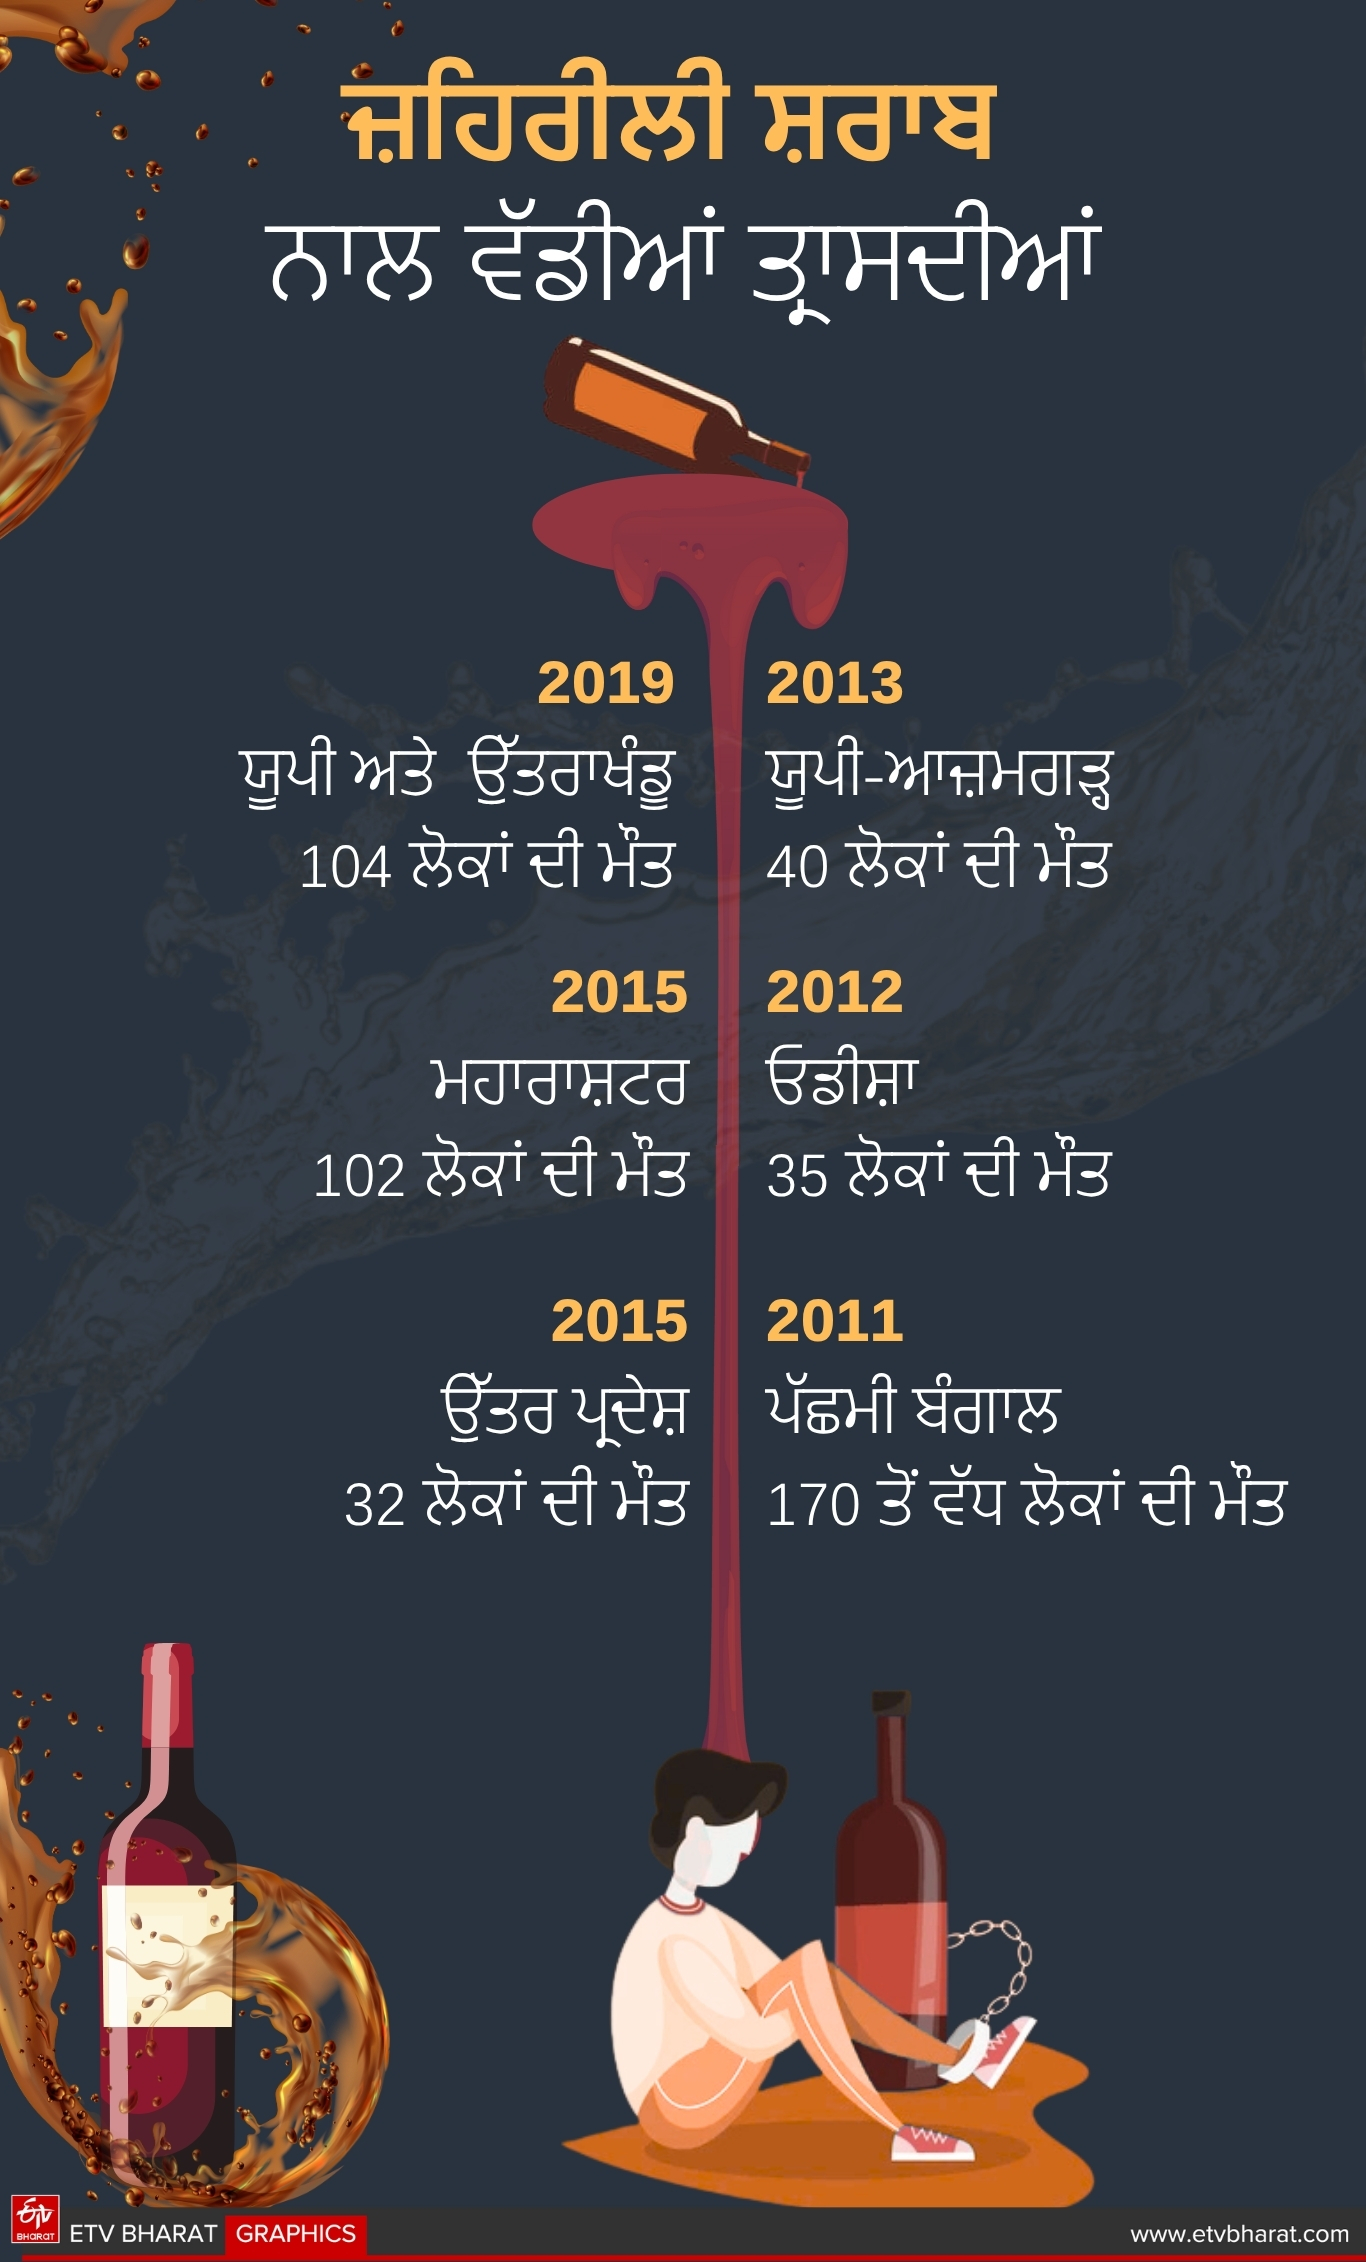 ਜ਼ਹਿਰੀਲੀ ਸ਼ਰਾਬ
ਨਾਲ ਵੱਡੀਆਂ ਤ੍ਰਾਸਦੀਆਂ
2019
ਯੂਪੀ ਅਤੇ ਉੱਤਰਾਖੰਡੂ
104 ਲੋਕਾਂ ਦੀ ਮੌਤ
2015
ਮਹਾਰਾਸ਼ਟਰ
102 ਲੋਕਾਂ ਦੀ ਮੌਤ
2015
ਉੱਤਰ ਪ੍ਰਦੇਸ਼
32 ਲੋਕਾਂ ਦੀ ਮੌਤ
2013
ਯੂਪੀ-ਆਜ਼ਮਗੜ੍ਹ
40 ਲੋਕਾਂ ਦੀ ਮੌਤ
2012
ਓਡੀਸ਼ਾ
35 ਲੋਕਾਂ ਦੀ ਮੌਤ
2011
ਪੱਛਮੀ ਬੰਗਾਲ
170 ਤੋਂ ਵੱਧ ਲੋਕਾਂ ਦੀ ਮੌਤ
ETV BHARAT
ETV BHARAT GRAPHICS
www.etvbharat.com